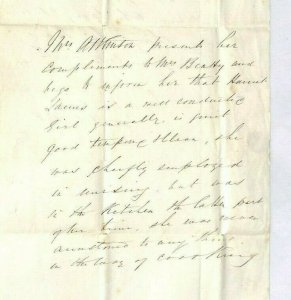 Mrs A Wonton presents her
Compliments to Mrs Beatty and
begs to inform her that Harriet
James is a well conducted
Girl generally, is quiet
good tempered & clean, she
was chiefly employed
in nursing, but was
in the Kitchen the later part
of her time, she was never
accustomed to any thing
in the way of cooking